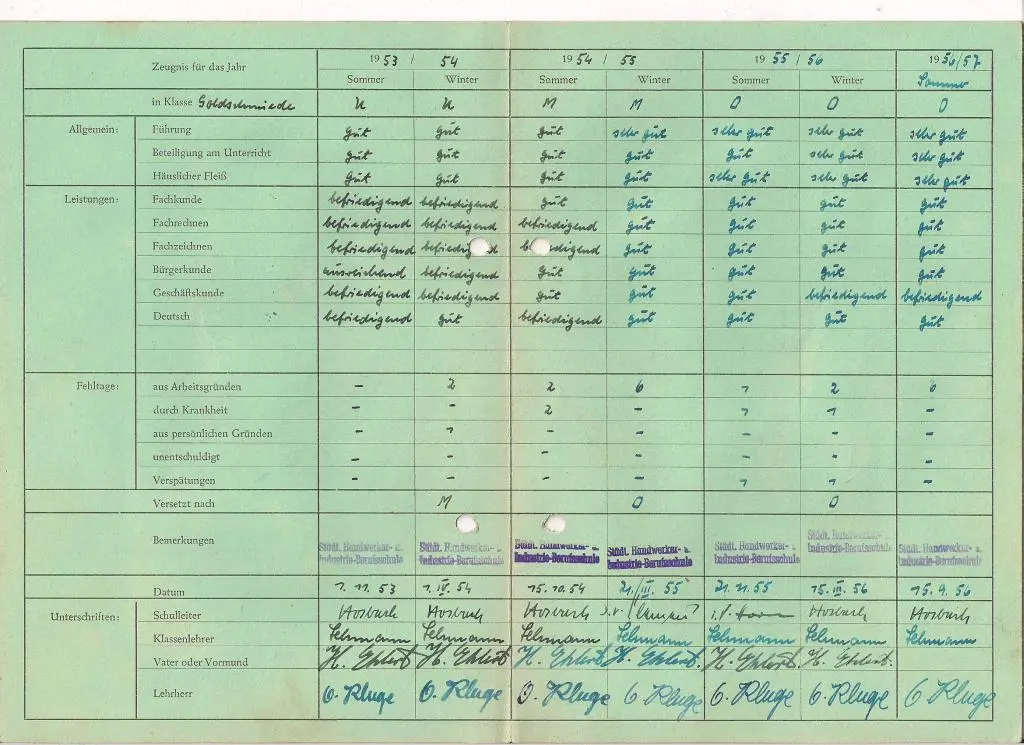 Zeugnis für das Jahr 1953 / 54 1954 / 55 1955 / 56 1956/57
Sommer Winter Sommer Winter Sommer Winter Sommer
in Klasse Goldschmiede U U M M O O O
Allgemein: Führung gut gut gut sehr gut sehr gut sehr gut sehr gut
Beteiligung am Unterricht gut gut gut gut gut sehr gut sehr gut
Häuslicher Fleiß gut gut gut gut sehr gut sehr gut sehr gut
Leistungen: Fachkunde befriedigend befriedigend gut gut gut gut gut
Fachrechnen befriedigend befriedigend befriedigend gut gut gut gut
Fachzeichnen befriedigend gut gut gut gut
Bürgerkunde ausreichend befriedigend gut gut gut gut gut
Geschäftskunde befriedigend befriedigend gut gut gut befriedigend befriedigend
Deutsch befriedigend gut befriedigend gut gut gut gut
Fehltage: aus Arbeitsgründen - 2 2 6 1 2 6
durch Krankheit - - 2 - 1 1 -
aus persönlichen Gründen - 1 - - - - -
unentschuldigt - - - - - - -
Verspätungen - - - - 1 1 -
Versetzt nach M O O
Bemerkungen Städt. Handwerker- u. Städt. Handwerker- u. Städt. Handwerker- u. Städt. Handwerker- u. Städt. Handwerker- u. Städt. Handwerker- u. Städt. Handwerker- u.
Industrie-Berufsschule Industrie-Berufsschule Industrie-Berufsschule Industrie-Berufsschule Industrie-Berufsschule Industrie-Berufsschule Industrie-Berufsschule
Datum 1. 11. 53 1. IV. 54 15. 10. 54 21/III. 55 21. 11. 55 15. III. 56 15. 9. 56
Unterschriften: Schulleiter Hosbach Hosbach Hosbach i.V. i.V. Hosbach Hosbach
Klassenlehrer Lehmann Lehmann Lehmann Lehmann Lehmann Lehmann Lehmann
Vater oder Vormund H. Ehlert H. Ehlert H. Ehlert H. Ehlert H. Ehlert H. Ehlert.
Lehrherr O. Kluge O. Kluge O. Kluge O. Kluge O. Kluge O. Kluge O. Kluge